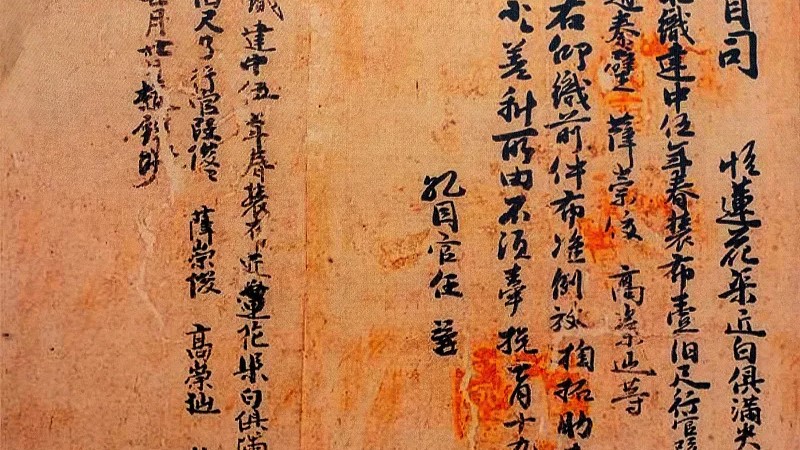 目司 帖蓮花渠近白俱滿失
織建中伍年春裝布壹伯尺行官段
秦璧 薛崇俊 高崇迅等
右仰織前件布准例放掏拓助
小差科所由不須牽挽七月十九
孔目官任
織建中伍年春裝布近蓮花渠白俱滿
伯尺了行官段俊俊 薛崇俊 高崇迅
月廿日趙